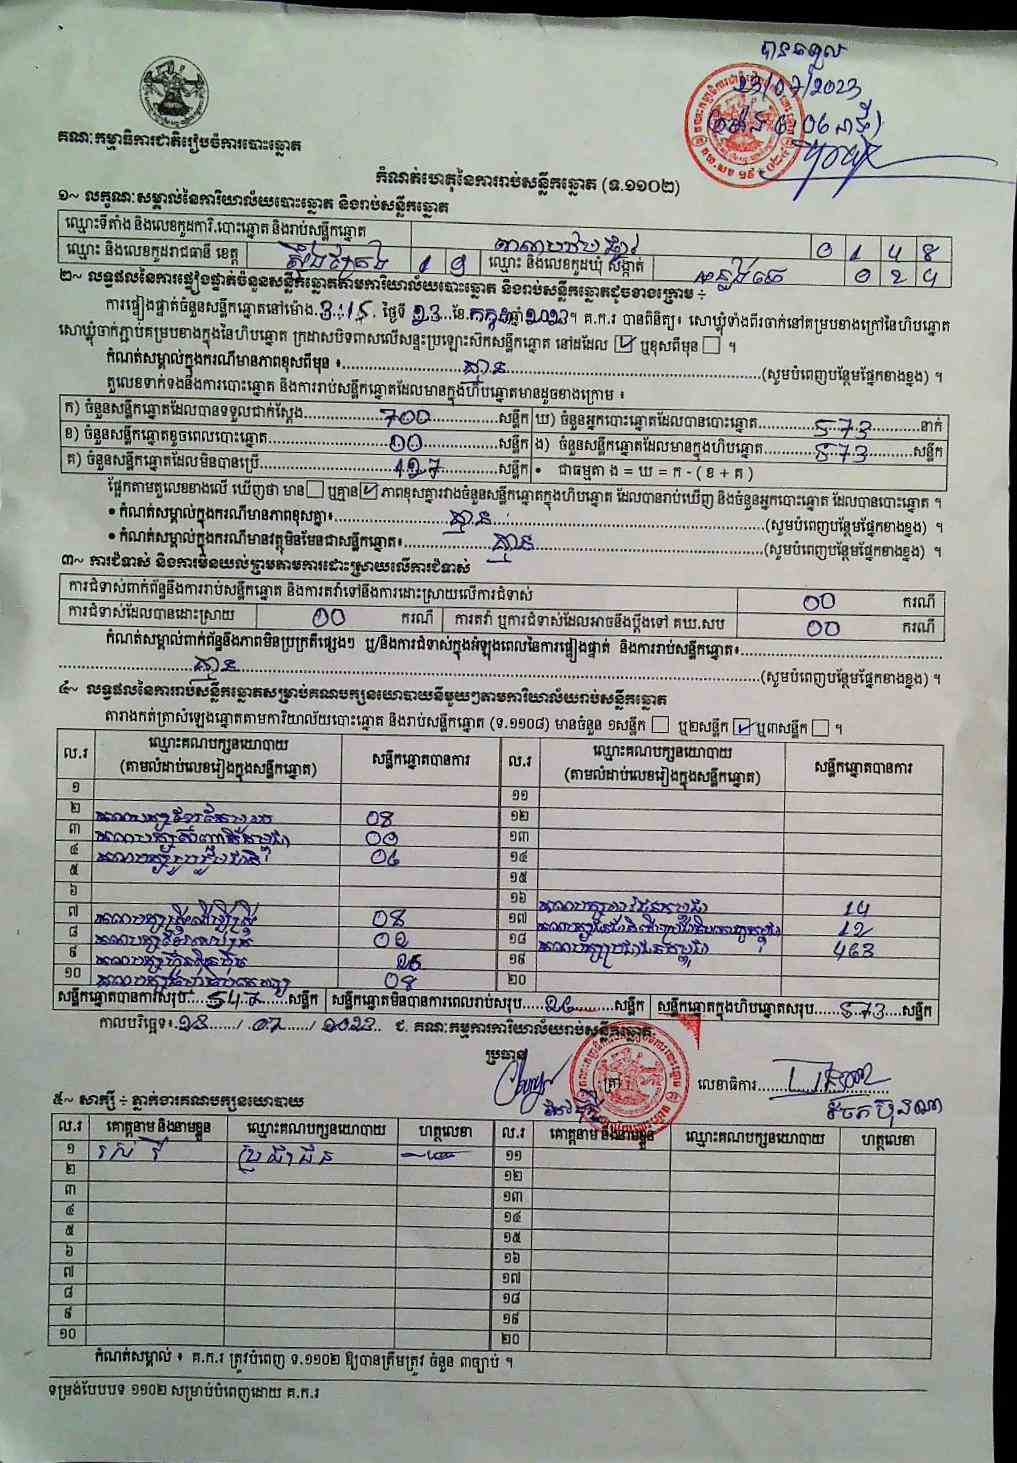 បានទទួល
23/07/2023
គណៈកម្មាធិការជាតិរៀបចំការបោះឆ្នោត
កំណត់ហេតុនៃការរាប់សន្លឹកឆ្នោត (ទ.១១០២)
១~ លក្ខណៈសម្គាល់នៃការិយាល័យបោះឆ្នោត និងរាប់សន្លឹកឆ្នោត
ឈ្មោះទីតាំង និងលេខកូដការិ.បោះឆ្នោត និងរាប់សន្លឹកឆ្នោត 0 1 4 8
ឈ្មោះ និងលេខកូដរាជធានី ខេត្ត ស្ទឹងត្រែង 1 9 ឈ្មោះ និងលេខកូដឃុំ សង្កាត់ 0 2 4
២~ លទ្ធផលនៃការផ្ទៀងផ្ទាត់ចំនួនសន្លឹកឆ្នោតតាមការិយាល័យបោះឆ្នោត និងរាប់សន្លឹកឆ្នោតដូចខាងក្រោម ÷
ការផ្ទៀងផ្ទាត់ចំនួនសន្លឹកឆ្នោតនៅម៉ោង 3:15 ថ្ងៃទី 23 ខែ កក្កដា ឆ្នាំ 2023។ គ.ក.រ បានពិនិត្យ៖ សោឃ្លុំទាំងពីរចាក់នៅគម្របខាងក្រៅនៃហិបឆ្នោត
សោឃ្លុំចាក់ភ្ជាប់គម្របខាងក្នុងនៃហិបឆ្នោត ក្រដាសបិទពាសលើសន្ទះប្រឡោះស៊កសន្លឹកឆ្នោត នៅដដែល ☑ ឬខុសពីមុន ☐ ។
កំណត់សម្គាល់ក្នុងករណីមានភាពខុសពីមុន ៖ គ្មាន (សូមបំពេញបន្ថែមផ្នែកខាងខ្នង) ។
តួលេខទាក់ទងនឹងការបោះឆ្នោត និងការរាប់សន្លឹកឆ្នោតដែលមានក្នុងហិបឆ្នោតមានដូចខាងក្រោម ៖
ក) ចំនួនសន្លឹកឆ្នោតដែលបានទទួលជាក់ស្ដែង 700 សន្លឹក ឃ) ចំនួនអ្នកបោះឆ្នោតដែលបានបោះឆ្នោត 573 នាក់
ខ) ចំនួនសន្លឹកឆ្នោតខូចពេលបោះឆ្នោត 00 សន្លឹក ង) ចំនួនសន្លឹកឆ្នោតដែលមានក្នុងហិបឆ្នោត 573 សន្លឹក
គ) ចំនួនសន្លឹកឆ្នោតដែលមិនបានប្រើ 127 សន្លឹក • ជាធម្មតា ង = ឃ = ក - ( ខ + គ )
ផ្អែកតាមតួលេខខាងលើ ឃើញថា មាន ☐ ឬគ្មាន ☑ ភាពខុសគ្នារវាងចំនួនសន្លឹកឆ្នោតក្នុងហិបឆ្នោត ដែលបានរាប់ឃើញ និងចំនួនអ្នកបោះឆ្នោត ដែលបានបោះឆ្នោត ។
• កំណត់សម្គាល់ក្នុងករណីមានភាពខុសគ្នា៖ គ្មាន (សូមបំពេញបន្ថែមផ្នែកខាងខ្នង) ។
• កំណត់សម្គាល់ក្នុងករណីមានវត្ថុមិនមែនជាសន្លឹកឆ្នោត៖ គ្មាន (សូមបំពេញបន្ថែមផ្នែកខាងខ្នង) ។
៣~ ការជំទាស់ និងការមិនយល់ព្រមតាមការដោះស្រាយលើការជំទាស់
ការជំទាស់ពាក់ព័ន្ធនឹងការរាប់សន្លឹកឆ្នោត និងការតវ៉ាទៅនឹងការដោះស្រាយលើការជំទាស់ 00 ករណី
ការជំទាស់ដែលបានដោះស្រាយ 00 ករណី ការតវ៉ា ឬការជំទាស់ដែលអាចនឹងប្ដឹងទៅ គឃ.សប 00 ករណី
កំណត់សម្គាល់ពាក់ព័ន្ធនឹងភាពមិនប្រក្រតីផ្សេងៗ ឬ/និងការជំទាស់ក្នុងអំឡុងពេលនៃការផ្ទៀងផ្ទាត់ និងការរាប់សន្លឹកឆ្នោត៖
គ្មាន (សូមបំពេញបន្ថែមផ្នែកខាងខ្នង) ។
៤~ លទ្ធផលនៃការរាប់សន្លឹកឆ្នោតសម្រាប់គណបក្សនយោបាយនីមួយៗតាមការិយាល័យរាប់សន្លឹកឆ្នោត
តារាងកត់ត្រាសំឡេងឆ្នោតតាមការិយាល័យបោះឆ្នោត និងរាប់សន្លឹកឆ្នោត (ទ.១១០៨) មានចំនួន ១សន្លឹក ☐ ឬ២សន្លឹក ☑ ឬ៣សន្លឹក ☐ ។
ល.រ ឈ្មោះគណបក្សនយោបាយ (តាមលំដាប់លេខរៀងក្នុងសន្លឹកឆ្នោត) សន្លឹកឆ្នោតបានការ ល.រ ឈ្មោះគណបក្សនយោបាយ (តាមលំដាប់លេខរៀងក្នុងសន្លឹកឆ្នោត) សន្លឹកឆ្នោតបានការ
១ ១១
២ 08 ១២
៣ ១៣
៤ ១៤
៥ ១៥
៦ ១៦ 14
៧ 08 ១៧ 12
៨ ១៨ គណបក្សប្រជាជនកម្ពុជា 463
៩ ១៩
១០ 08 ២០
សន្លឹកឆ្នោតបានការសរុប 547 សន្លឹក សន្លឹកឆ្នោតមិនបានការពេលរាប់សរុប 26 សន្លឹក សន្លឹកឆ្នោតក្នុងហិបឆ្នោតសរុប 573 សន្លឹក
កាលបរិច្ឆេទ៖ 23 / 07 / 2023 ជ. គណៈកម្មការការិយាល័យរាប់សន្លឹកឆ្នោត
ប្រធាន (ត្រា) លេខាធិការ
៥~ សាក្សី ÷ ភ្នាក់ងារគណបក្សនយោបាយ
ល.រ គោត្តនាម និងនាមខ្លួន ឈ្មោះគណបក្សនយោបាយ ហត្ថលេខា ល.រ គោត្តនាម និងនាមខ្លួន ឈ្មោះគណបក្សនយោបាយ ហត្ថលេខា
១ ប្រជាជន ១១
២ ១២
៣ ១៣
៤ ១៤
៥ ១៥
៦ ១៦
៧ ១៧
៨ ១៨
៩ ១៩
១០ ២០
កំណត់សម្គាល់ ៖ គ.ក.រ ត្រូវបំពេញ ទ.១១០២ ឱ្យបានត្រឹមត្រូវ ចំនួន ៣ច្បាប់ ។
ទម្រង់បែបបទ ១១០២ សម្រាប់បំពេញដោយ គ.ក.រ